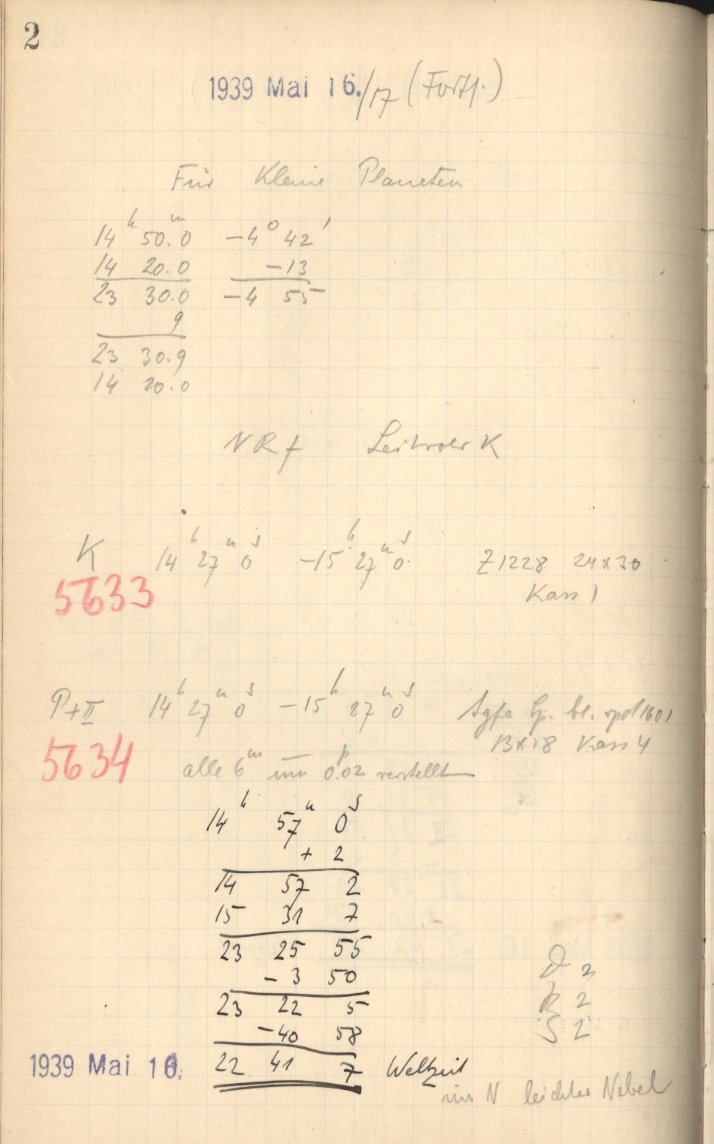 2
1939 Mai 16./17 (Forts.)
Für Kleine Planeten
14ʰ 50.0ᵐ -4° 42'
14 20.0 -13
23 30.0 -4 55
9
23 30.9
14 20.0
NRf K
K 14ʰ 27ᵐ 0ˢ -15ʰ 27ᵐ 0ˢ Z1228 24x30
5633 Kass 1
P+II 14ʰ 27ᵐ 0ˢ -15ʰ 27ᵐ 0ˢ Agfa
13x18 Kass 4
5634 alle 6ᵐ um 0.02 verstellt
14ʰ 57ᵐ 0ˢ
+ 2
14 57 2
15 31 7
23 25 55
- 3 50 2
23 22 5 R 2
-40 58 S 2
1939 Mai 16. 22 41 7 Weltzeit
im N leichter Nebel